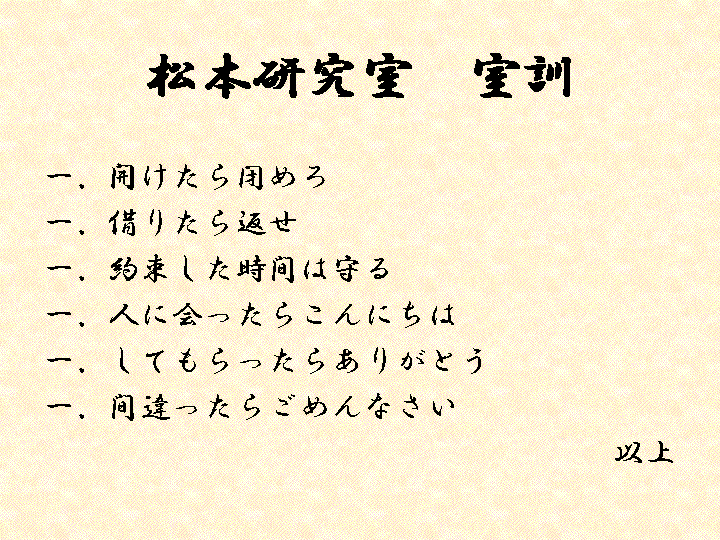 松本研究室　室訓
一．開けたら閉めろ
一．借りたら返せ
一．約束した時間は守る
一．人に会ったらこんにちは
一．してもらったらありがとう
一．間違ったらごめんなさい
以上